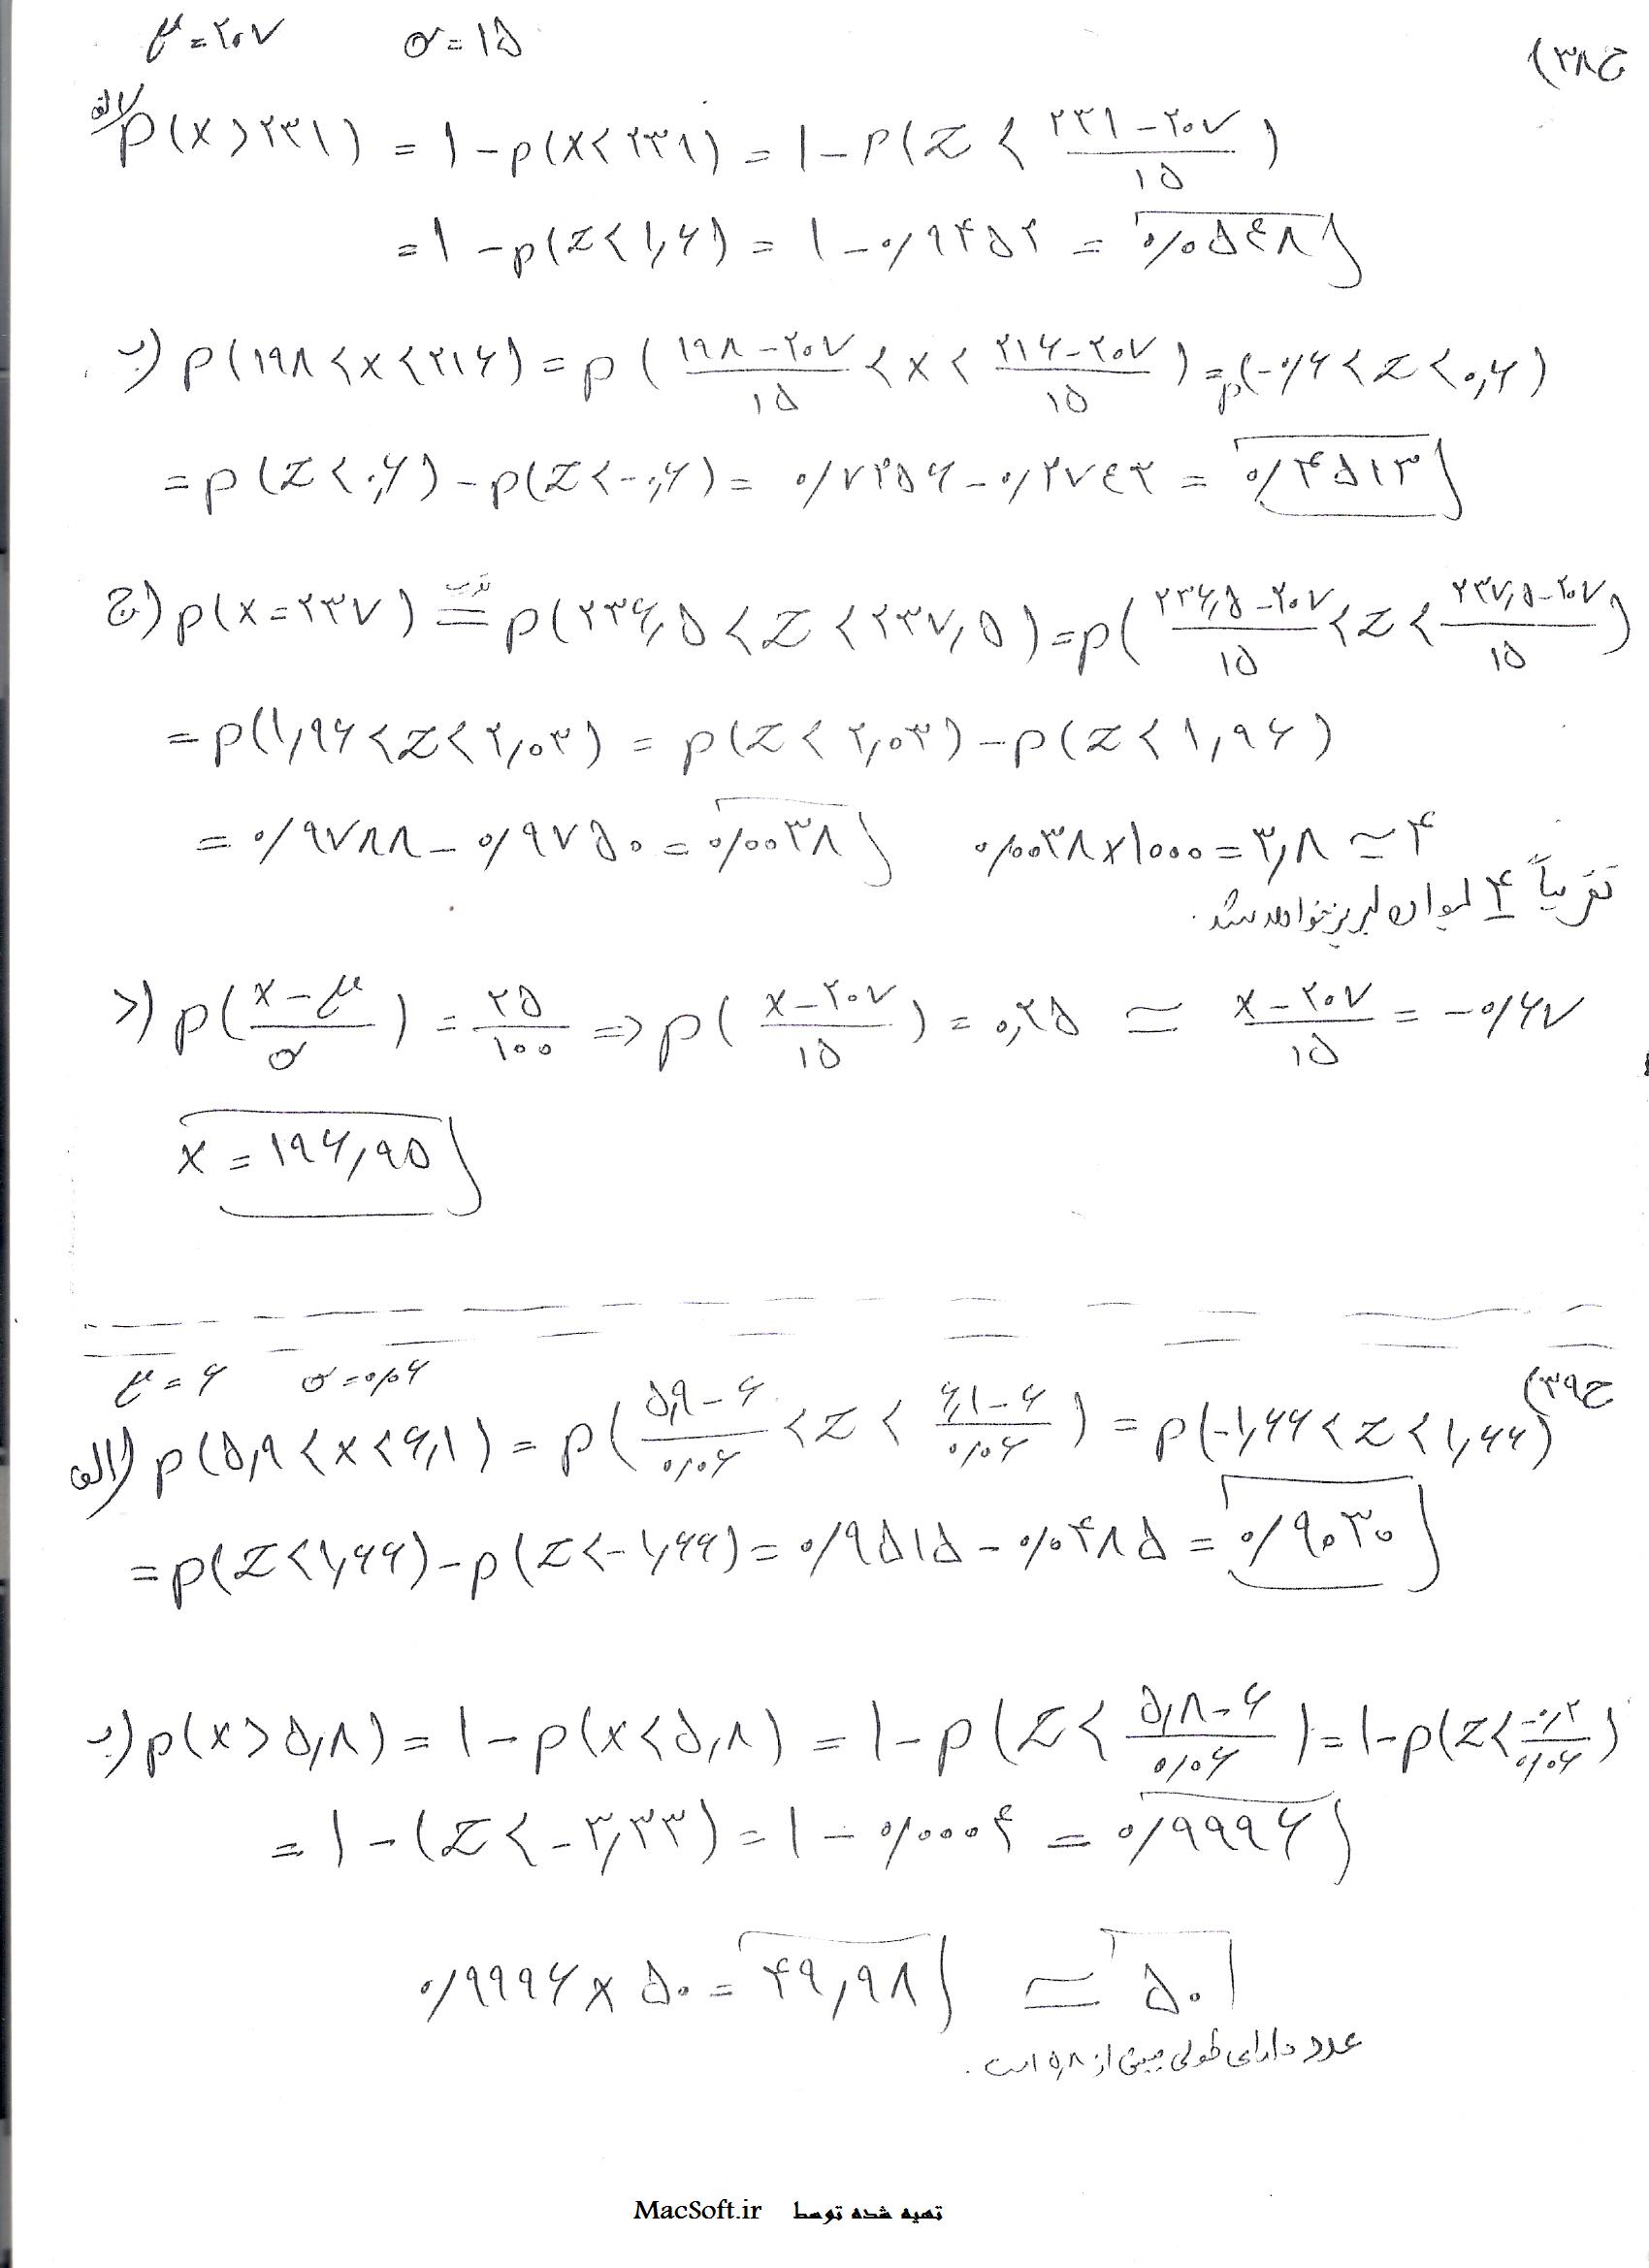 ج۳۸)
μ = ۲۰۷ σ = ۱۵
الف) p(x > ۲۳۱) = ۱ - p(x < ۲۳۱) = ۱ - p(Z < (۲۳۱ - ۲۰۷)/۱۵)
= ۱ - p(Z < ۱,۶) = ۱ - ۰/۹۴۵۲ = ۰/۰۵۴۸
ب) p(۱۹۸ < x < ۲۱۶) = p((۱۹۸ - ۲۰۷)/۱۵ < x < (۲۱۶ - ۲۰۷)/۱۵) = p(-۰/۶ < Z < ۰,۶)
= p(Z < ۰,۶) - p(Z < -۰,۶) = ۰/۷۲۵۶ - ۰/۲۷۴۳ = ۰/۴۵۱۳
ج) p(x = ۲۳۷) = p(۲۳۶,۵ < Z < ۲۳۷,۵) = p((۲۳۶,۵ - ۲۰۷)/۱۵ < Z < (۲۳۷,۵ - ۲۰۷)/۱۵)
= p(۱,۹۶ < Z < ۲,۰۳) = p(Z < ۲,۰۳) - p(Z < ۱,۹۶)
= ۰/۹۷۸۸ - ۰/۹۷۵۰ = ۰/۰۰۳۸ ۰/۰۰۳۸ × ۱۰۰۰ = ۳,۸ ≃ ۴
تقریباً ۴ لیوان لبریز خواهد شد.
د) p((x - μ)/σ) = ۲۵/۱۰۰ ⇒ p((x - ۲۰۷)/۱۵) = ۰,۲۵ ≃ (x - ۲۰۷)/۱۵ = -۰/۶۷
x = ۱۹۶,۹۵
ج۳۹)
μ = ۶ σ = ۰/۰۶
الف) p(۵,۹ < x < ۶,۱) = p((۵,۹ - ۶)/۰/۰۶ < Z < (۶,۱ - ۶)/۰/۰۶) = p(-۱,۶۶ < Z < ۱,۶۶)
= p(Z < ۱,۶۶) - p(Z < -۱,۶۶) = ۰/۹۵۱۵ - ۰/۰۴۸۵ = ۰/۹۰۳۰
ب) p(x > ۵,۸) = ۱ - p(x < ۵,۸) = ۱ - p(Z < (۵,۸ - ۶)/۰/۰۶) = ۱ - p(Z < -۰,۲/۰/۰۶)
= ۱ - (Z < -۳,۳۳) = ۱ - ۰/۰۰۰۴ = ۰/۹۹۹۶
۰/۹۹۹۶ × ۵۰ = ۴۹,۹۸ ≃ ۵۰
عدد دارای طولی بیش از ۵,۸ است.
تهیه شده توسط MacSoft.ir